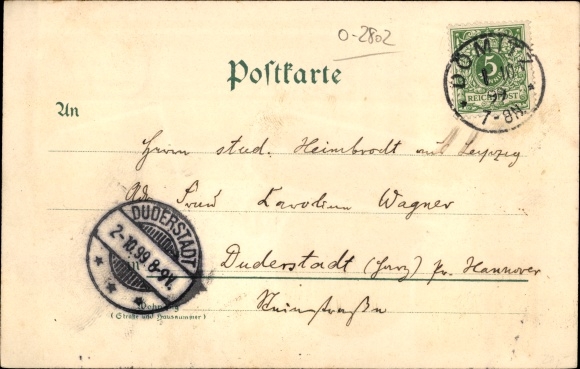 0-2802
Postkarte
5
REICHSPOST
DÖMITZ
1 10
99
7-8N.
An
Herrn stud. Heimbrodt aus Leipzig
Frau Karoline Wagner
DUDERSTADT
2-10.99.8-9V.
Duderstadt (Harz) Pr. Hannover
Steinstraße
Wohnung
(Straße und Hausnummer)